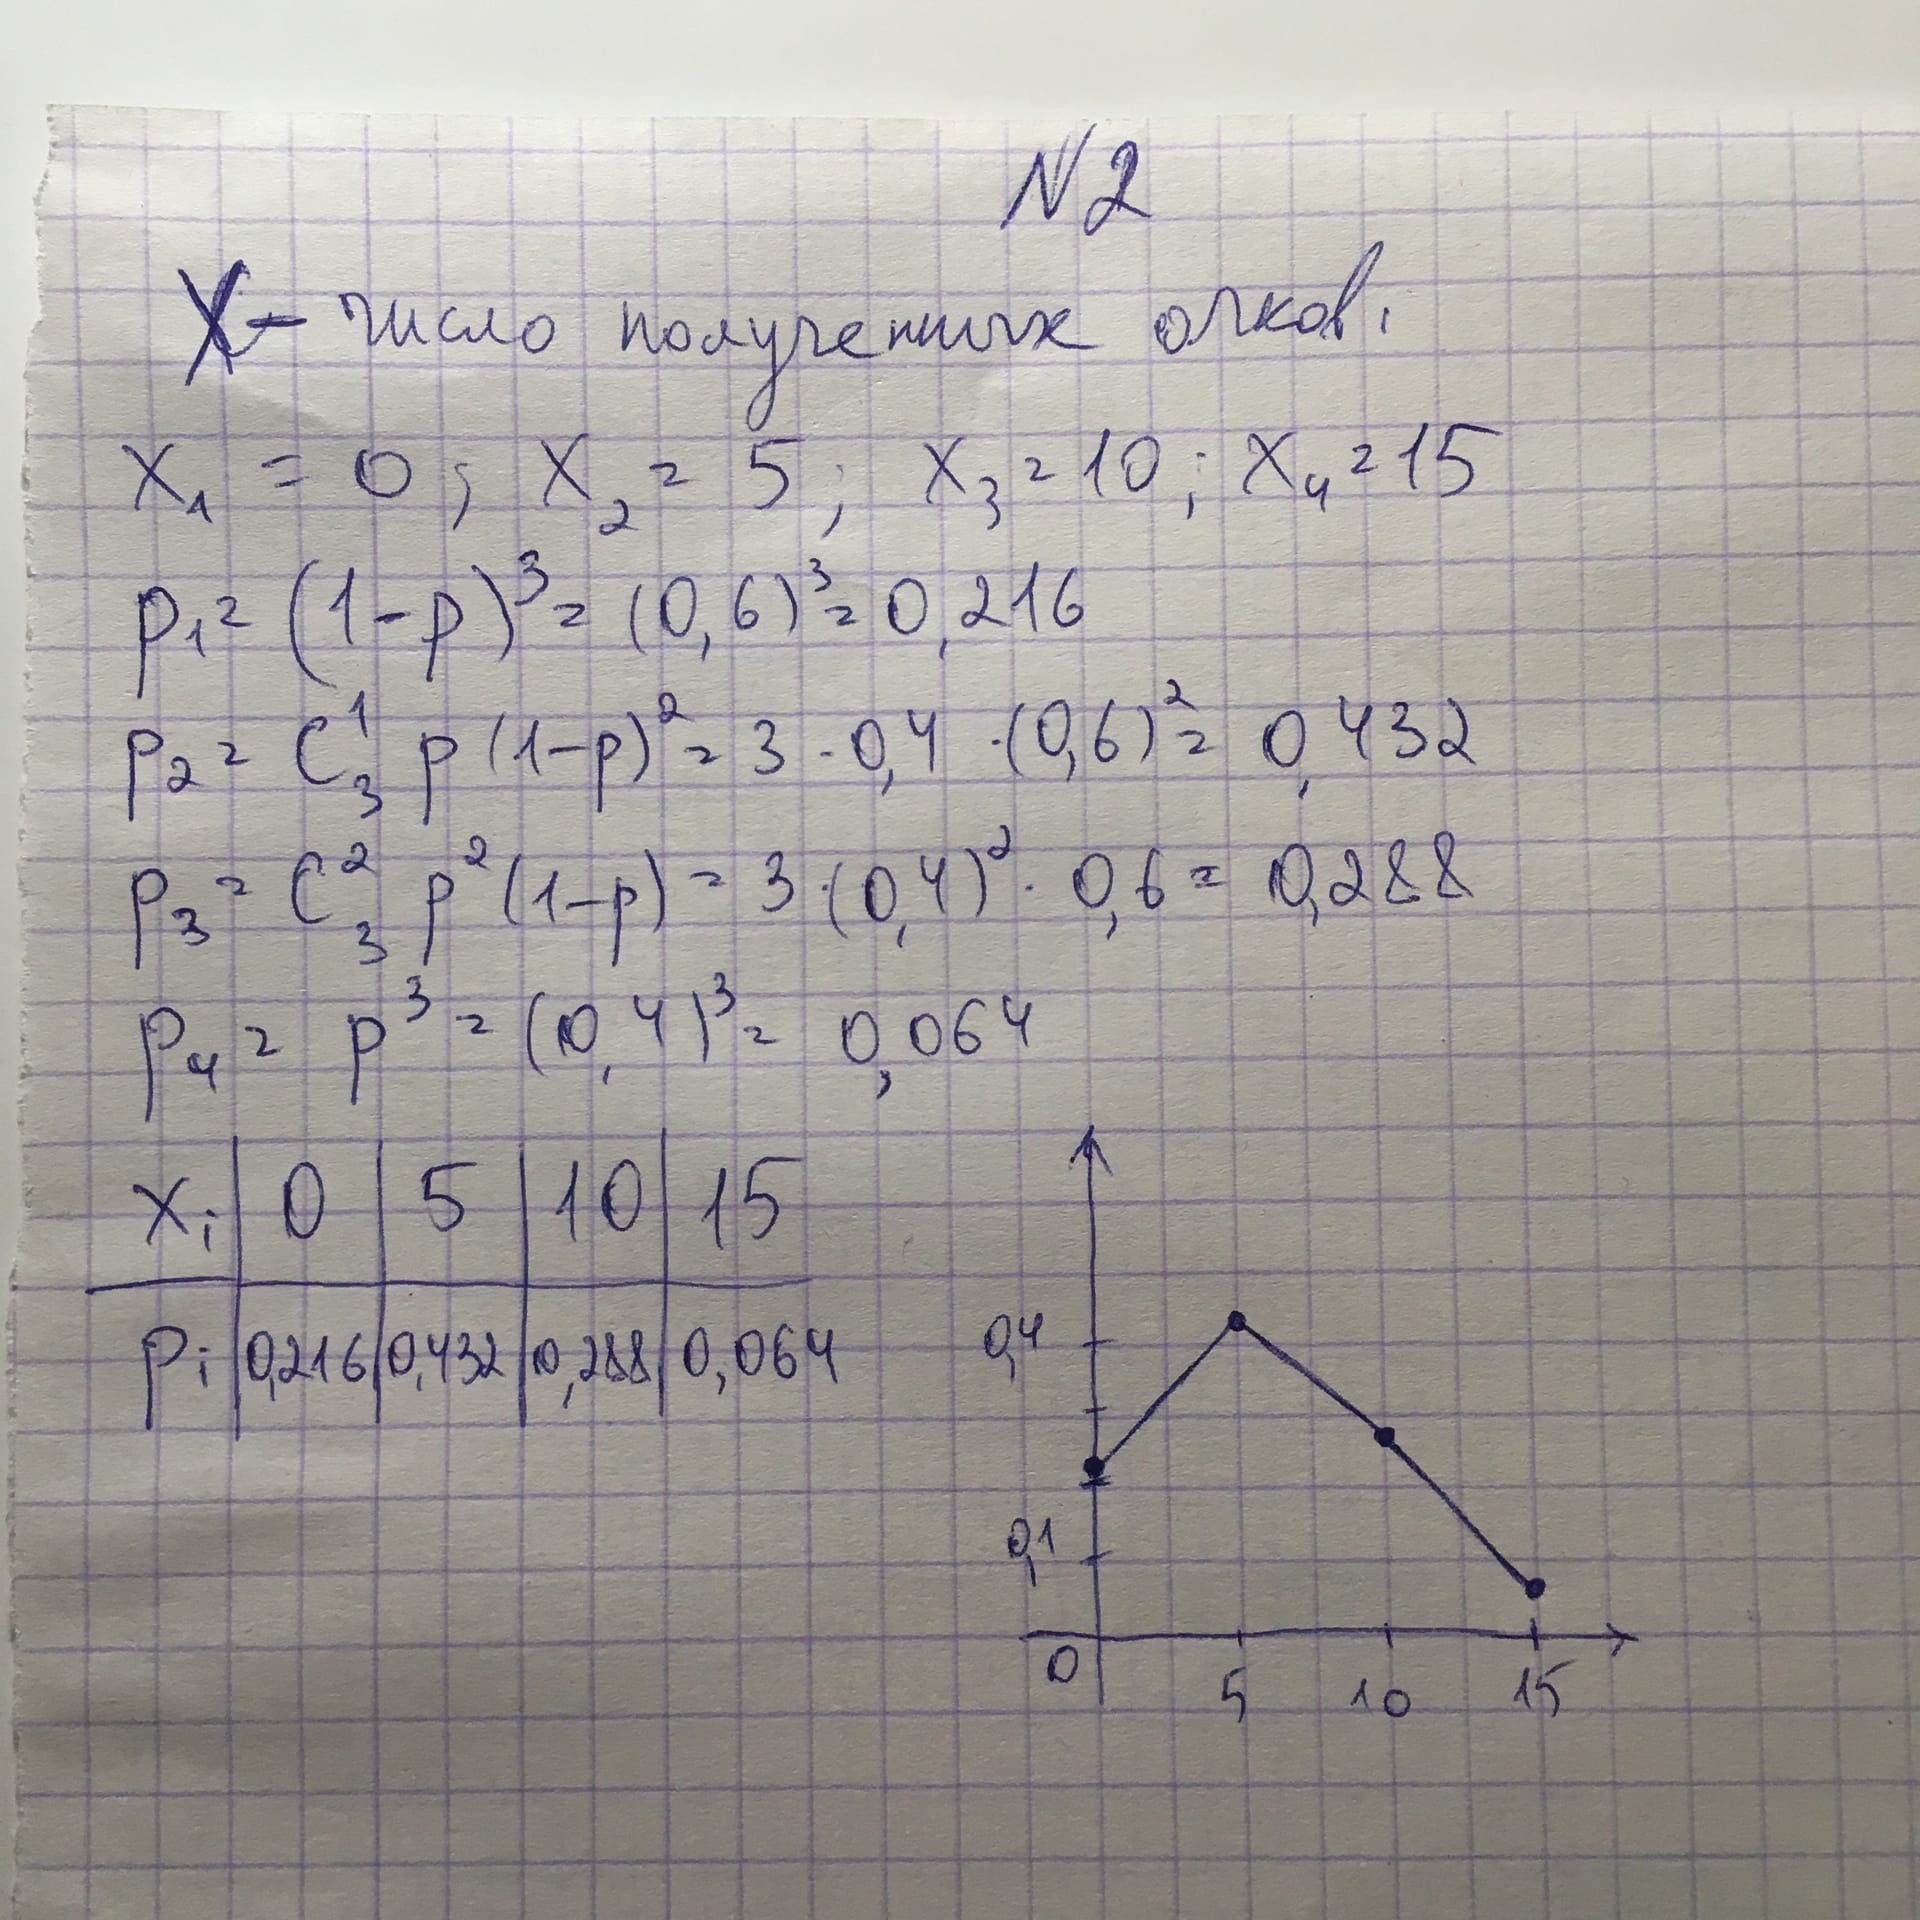 N2
X - число полученных очков.
x₁ = 0; x₂ = 5; x₃ = 10; x₄ = 15
p₁ = (1-p)³ = (0,6)³ = 0,216
p₂ = C₃¹ p (1-p)² = 3 · 0,4 · (0,6)² = 0,432
p₃ = C₃² p² (1-p) = 3 · (0,4)² · 0,6 = 0,288
p₄ = p³ = (0,4)³ = 0,064
xᵢ | 0 | 5 | 10 | 15
pᵢ | 0,216 | 0,432 | 0,288 | 0,064
0,4
0,1
0 5 10 15